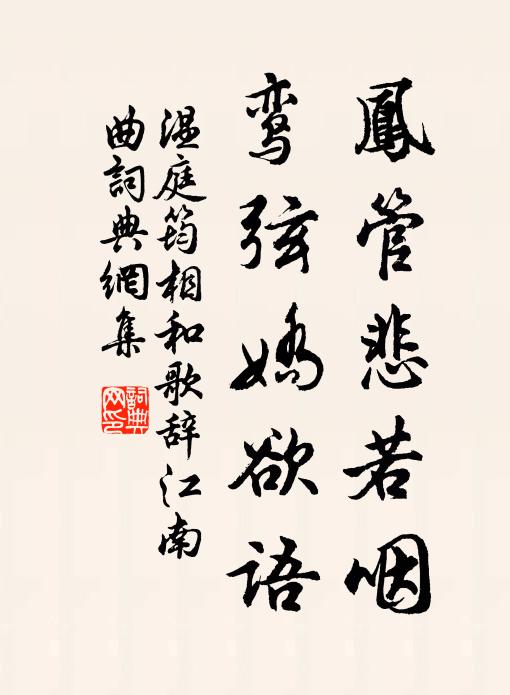 鳳管悲若咽
鸾弦嬌欲語
温庭筠相和歌辞江南
曲詞典網集
詞典
网印